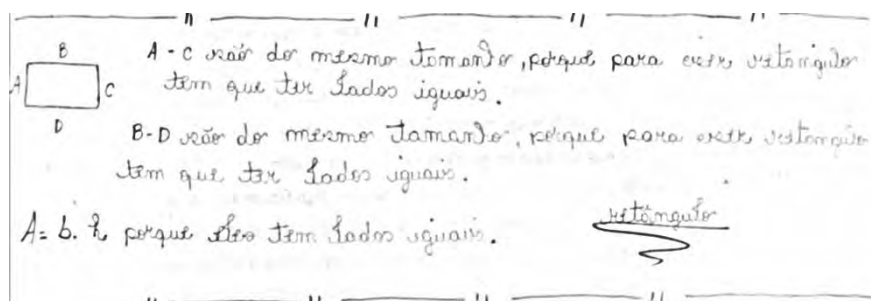 B
A - C são do mesmo tamanho, porque para esse retângulo
A
C
tem que ter lados iguais.
D
B-D são do mesmo tamanho, porque para esse retângulo
tem que ter lados iguais.
retângulo
A = b. h porque eles tem lados iguais.